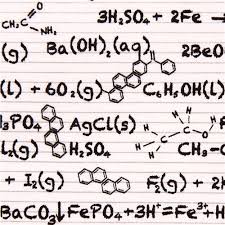 C O NH₂ 3H₂SO₄ + 2Fe →
(g) Ba(OH)₂(aq) 2BeO
(l) + 6O₂(g) C₆H₅OH(l)
3PO₄ AgCl(s) H H C C O H
L₂(g) H₂SO₄ H H CH₃-C
+ I₂(g) F₂(g) + 2H
BaCO₃↓ FePO₄ + 3H⁺ = Fe³⁺ + H